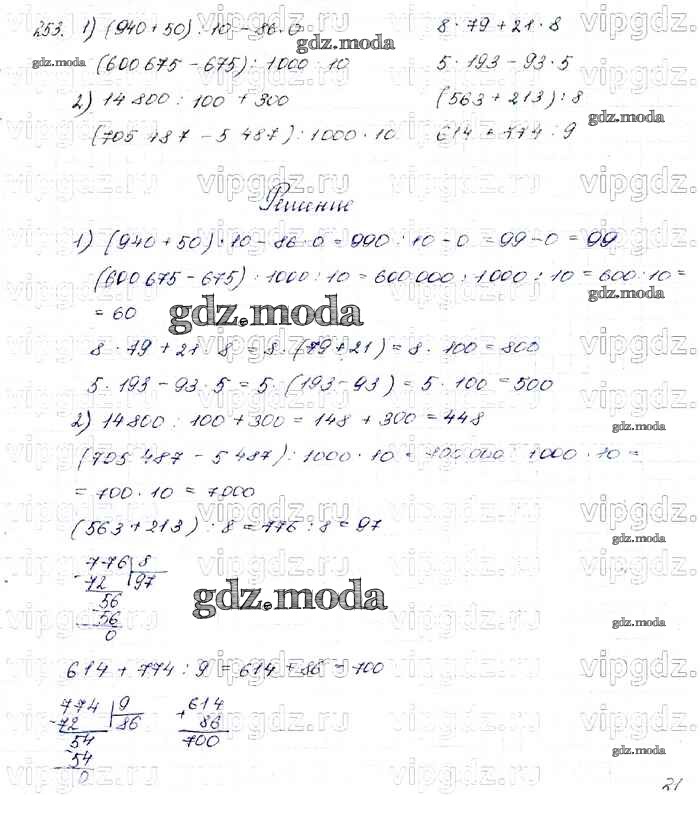 253. 1) (940 + 50) : 10 - 86 · 0    8 · 79 + 21 · 8
(600 675 - 675) : 1000 : 10    5 · 193 - 93 · 5
2) 14 800 : 100 + 300    (563 + 213) : 8
(705 487 - 5 487) : 1000 · 10    614 + 774 : 9
Решение
1) (940 + 50) : 10 - 86 · 0 = 990 : 10 - 0 = 99 - 0 = 99
(600 675 - 675) : 1000 : 10 = 600 000 : 1000 : 10 = 600 : 10 =
= 60
8 · 79 + 21 · 8 = 8 · (79 + 21) = 8 · 100 = 800
5 · 193 - 93 · 5 = 5 · (193 - 93) = 5 · 100 = 500
2) 14 800 : 100 + 300 = 148 + 300 = 448
(705 487 - 5 487) : 1000 · 10 = 700 000 : 1000 · 10 =
= 700 · 10 = 7000
(563 + 213) : 8 = 776 : 8 = 97
- 776 | 8
72 | 97
- 56
56
0
614 + 774 : 9 = 614 + 86 = 700
- 774 | 9    + 614
72 | 86    86
- 54    700
54
0
21
gdz.moda
vipgdz.ru